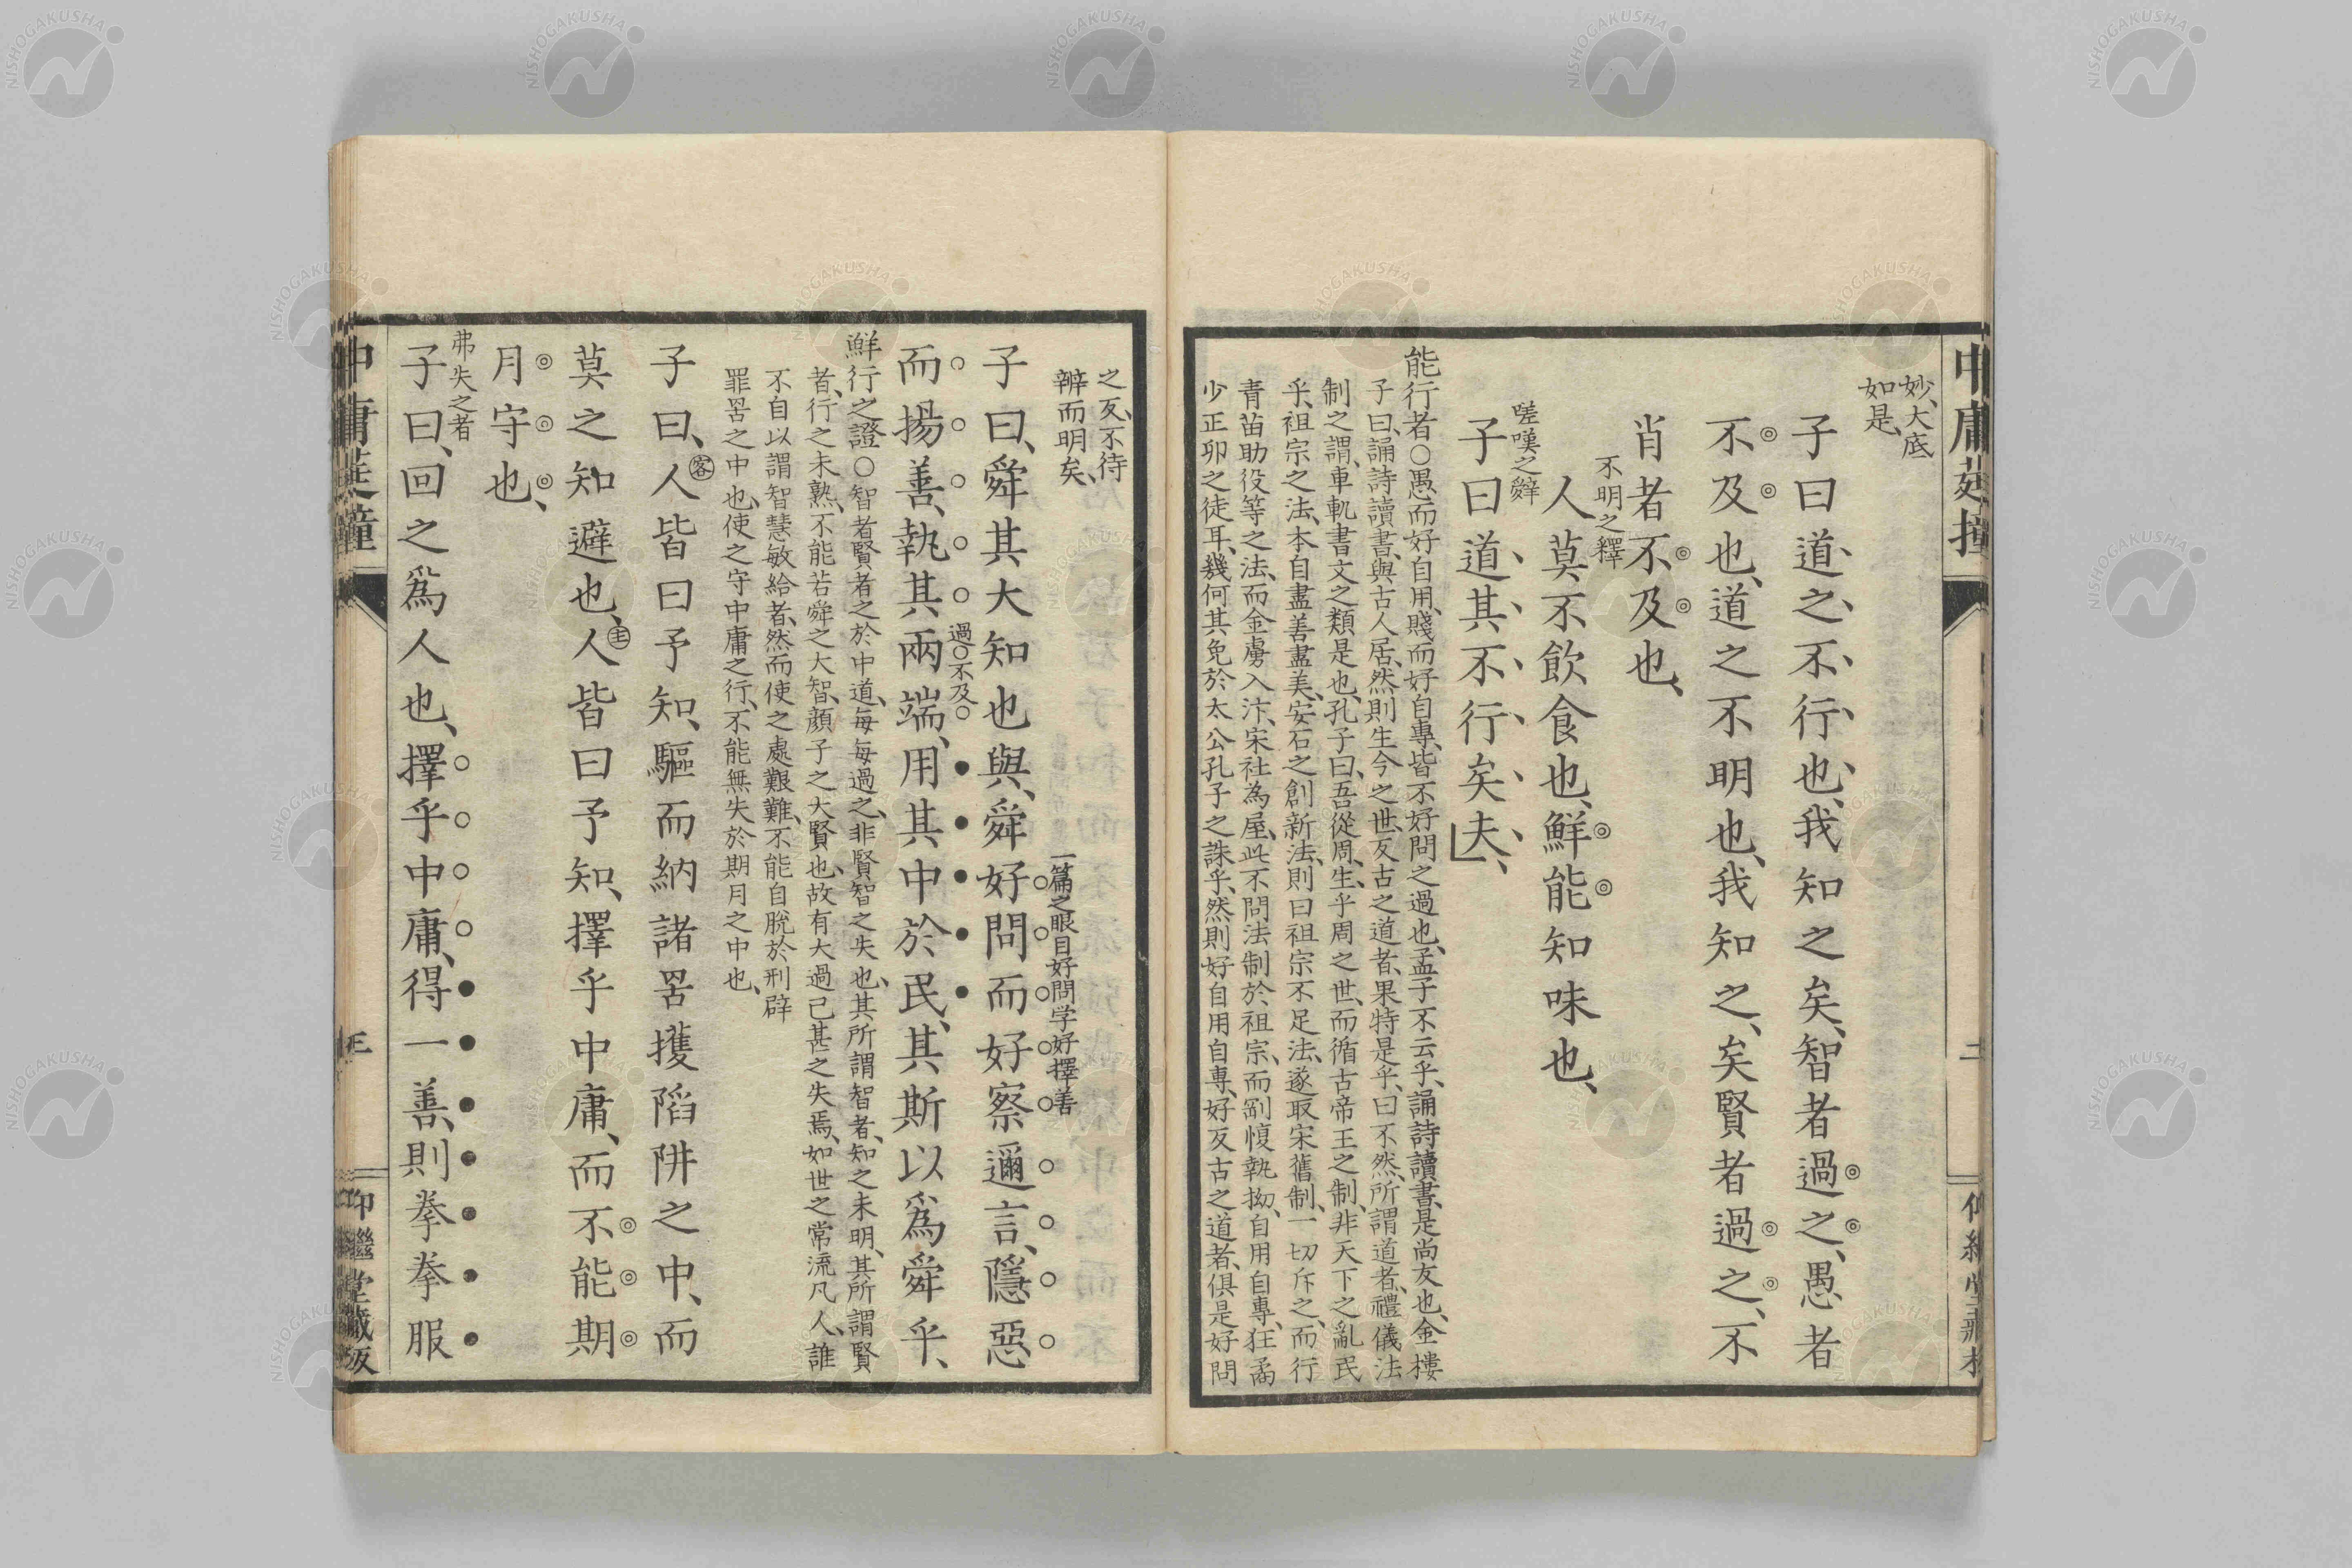 妙、大底
如是、
子曰道之不行也、我知之矣、智者過之、愚者
不及也、道之不明也、我知之、矣賢者過之、不
肖者不及也、
不明之釋
人莫不飲食也、鮮能知味也、
嗟嘆之辭
子曰道其不行矣夫、
能行者○愚而好自用、賤而好自專、皆不好問之過也、孟子不云乎、誦詩讀書、是尚友也、金樓
子曰、誦詩讀書、與古人居、然則生今之世、反古之道者、果特是乎、曰不然、所謂道者、禮儀法
制之謂、車軌書文之類是也、孔子曰、吾從周、生乎周之世、而循古帝王之制、非天下之亂民
乎、祖宗之法、本自盡善盡美、安石之創新法、則曰祖宗不足法、遂取宋舊制、一切斥之、而行
青苗助役等之法、而金虜入汴、宋社為屋、此不問法制於祖宗、而剛愎執拗、自用自專、狂矞
少正卯之徒耳、幾何其免於太公孔子之誅乎、然則好自用自專、好反古之道者、俱是好問
中庸莛撞
二
之反、不待
辨而明矣、
一篇之眼目好問学好擇善
子曰、舜其大知也與、舜好問而好察邇言、隱惡
過○不及○
而揚善、執其兩端、用其中於民、其斯以爲舜乎、
鮮行之證○智者賢者之於中道、每每過之、非賢智之失也、其所謂智者、知之未明、其所謂賢
者、行之未熟、不能若舜之大智、顏子之大賢也、故有大過已甚之失焉、如世之常流凡人、誰
不自以謂智慧敏給者、然而使之處艱難、不能自脫於刑辟
罪罟之中也、使之守中庸之行、不能無失於期月之中也、
子曰、人皆曰予知、驅而納諸罟擭陷阱之中、而
客
莫之知避也、人皆曰予知、擇乎中庸、而不能期
主
月守也、
弗失之者
子曰、回之爲人也、擇乎中庸、得一善、則拳拳服
中庸莛撞
三
仰繼堂藏板